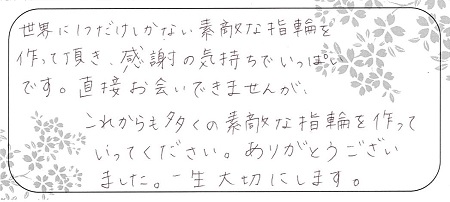 世界に1つだけしかない素敵な指輪を
作って頂き、感謝の気持ちでいっぱい
です。直接お会いできませんが、
これからも多くの素敵な指輪を作って
いってください。ありがとうござい
ました。一生大切にします。